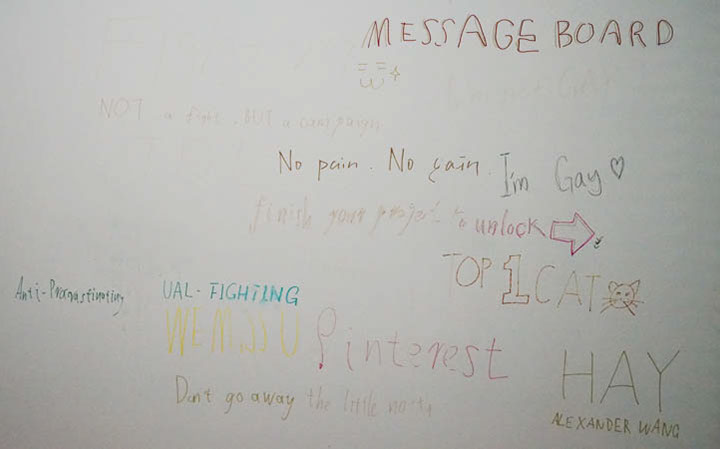 MESSAGE BOARD
NOT a fight. BUT a campaign
No pain. No gain.
I'm Gay
finish your project to unlock
TOP 1 CAT
Anti-Procrastinating
UAL-FIGHTING
WE MISS U
Pinterest
HAY
Don't go away the little
ALEXANDER WANG